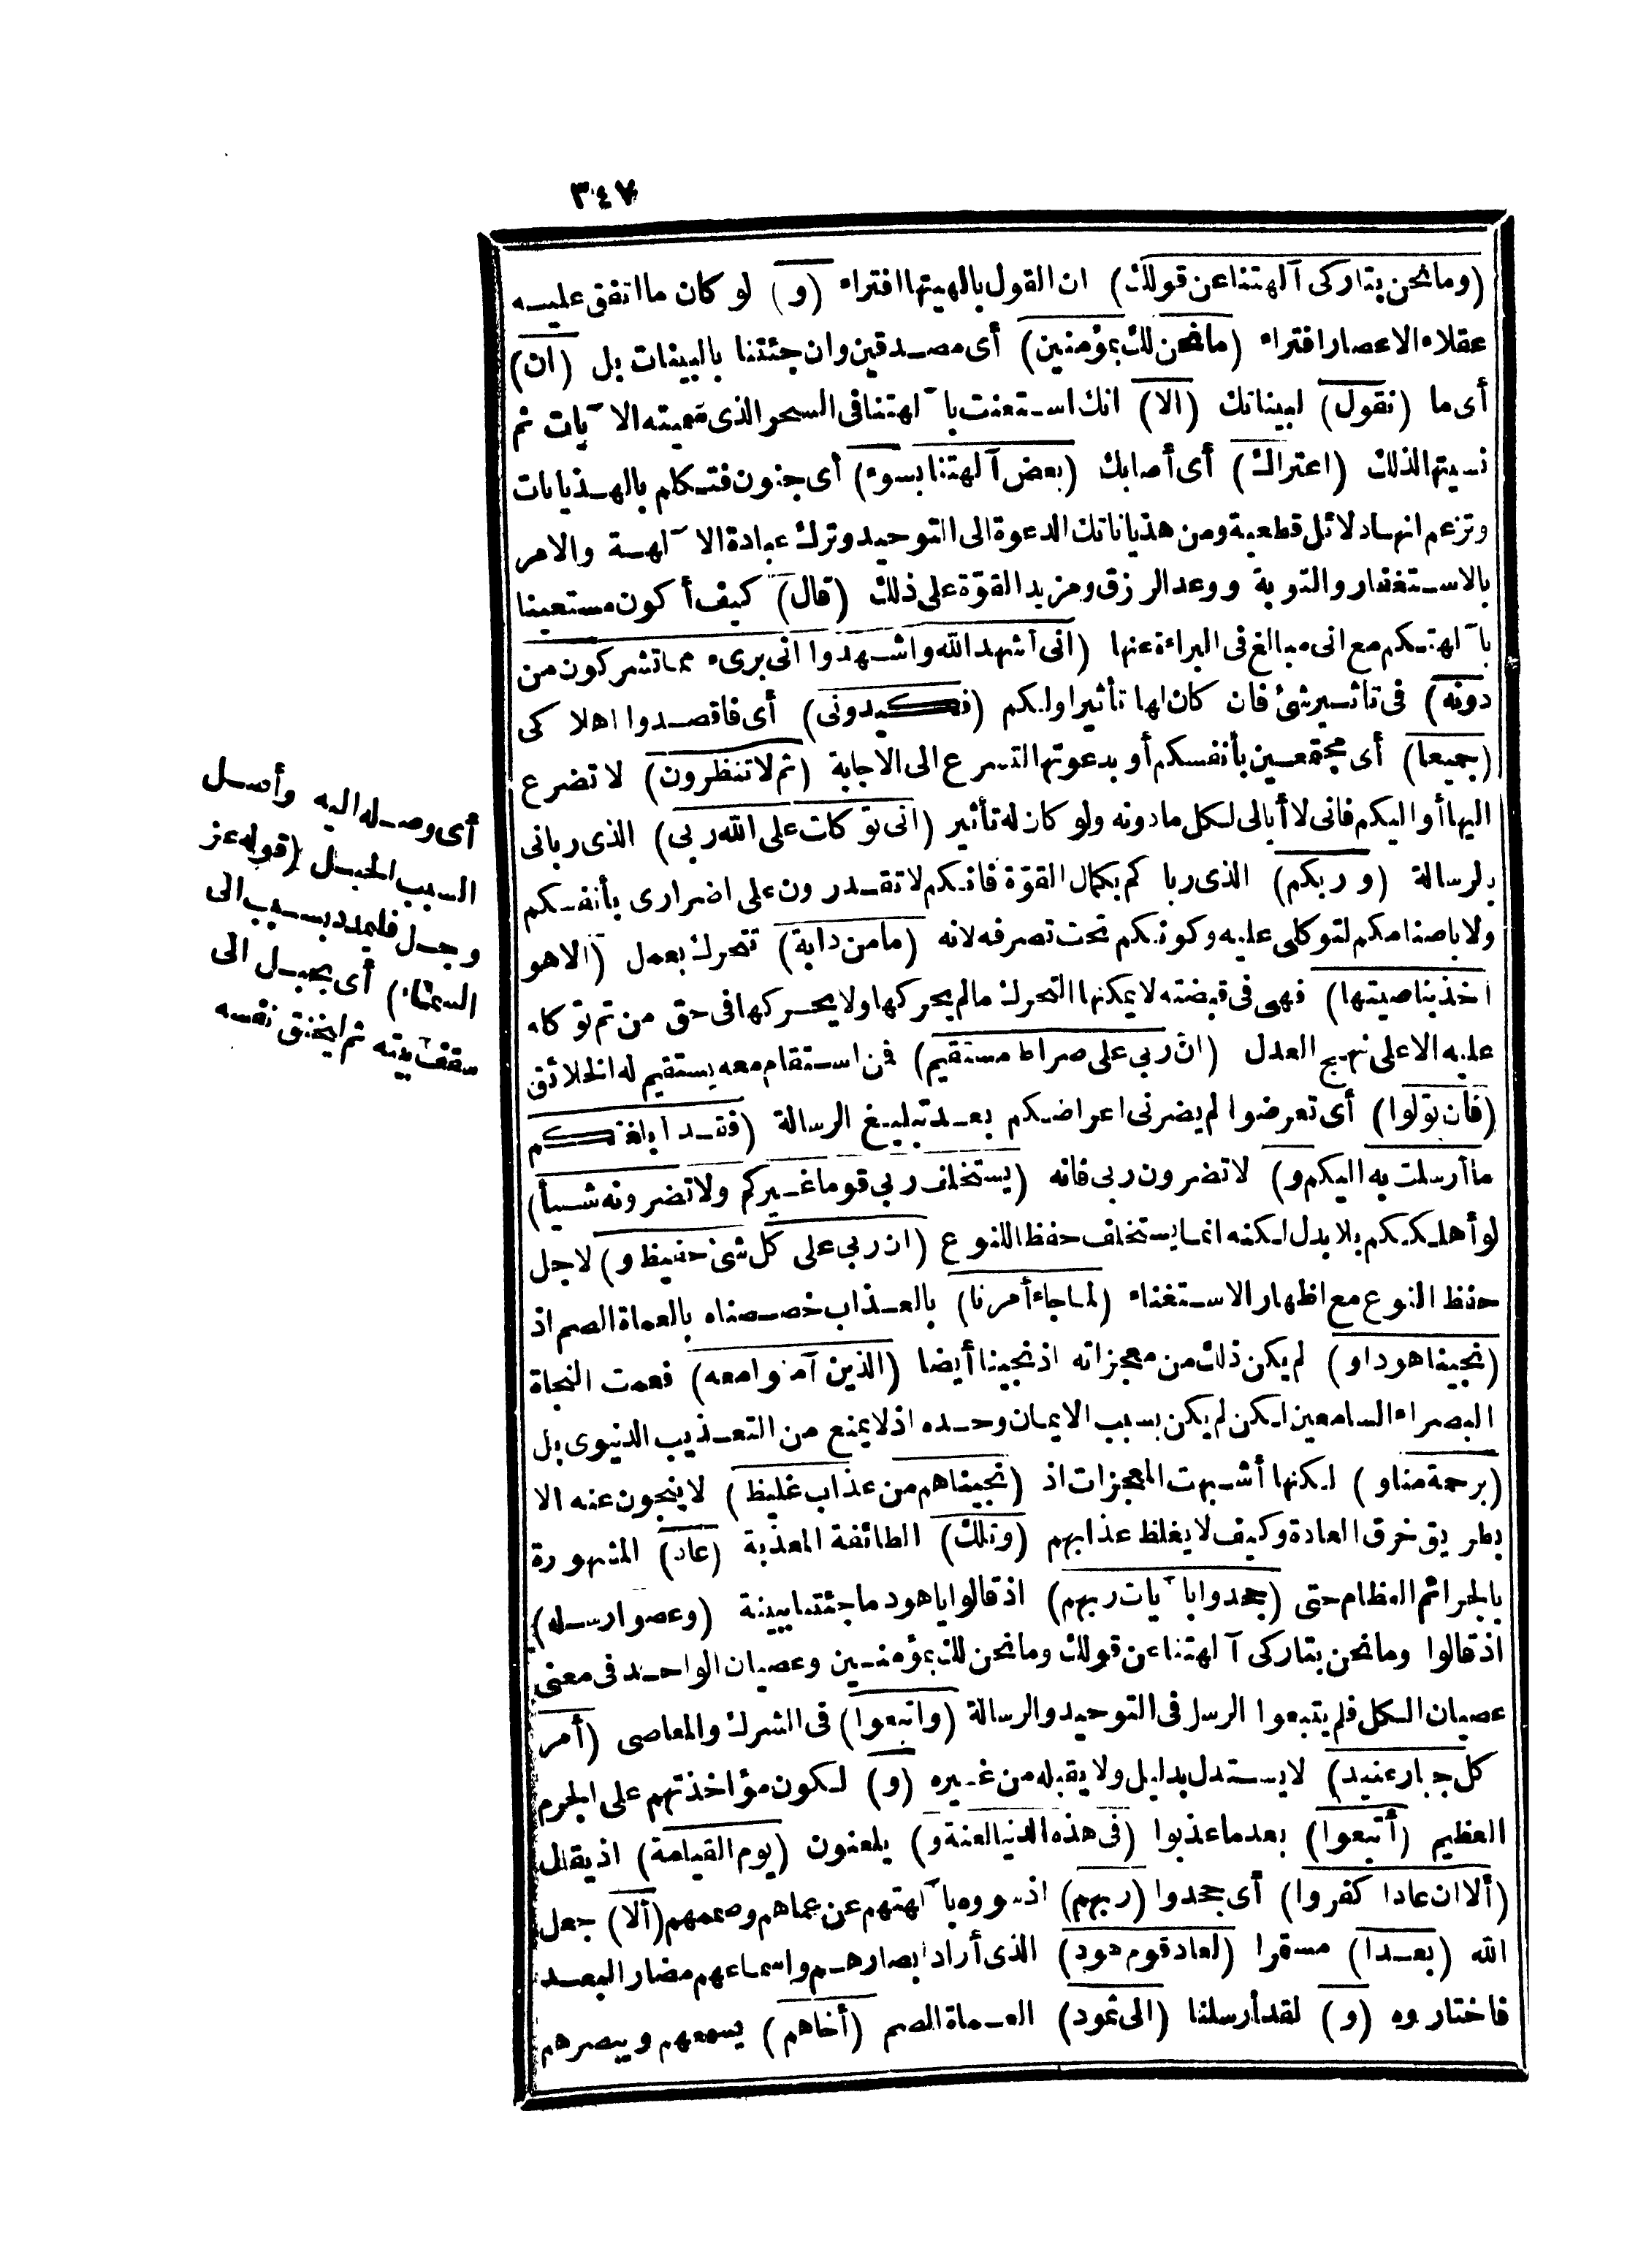 ٣٤٧
(وما نحن بتاركى آلهتنا عن قولك) ان القول بالهيتها افتراء (و) لو كان ما اتفق عليه
عقلاء الاعصار افتراء (ما نحن لك بمؤمنين) أى مصدقين وان جئتنا بالبينات بل (ان)
أى ما (نقول) لبيناتك (الا) انك استعنت با لهتنا فى السحر الذى سميته الا يات ثم
نسيتها لذلك (اعتراك) أى أصابك (بعض آلهتنا بسوء) أى جنون فتكلم بالهذيانات
وتزعم انها دلائل قطعية ومن هذياناتك الدعوة الى التوحيد وترك عبادة الا لهة والامر
بالاستغفار والتوبة ووعد الرزق ومزيد القوّة على ذلك (قال) كيف أكون مستعينا
با لهتكم مع انى مبالغ فى البراءة عنها (انى أشهد الله واشهدوا انى برىء مما تشركون من
دونه) فى تاثير شئ فان كان لها تأثير اولكم (فكيدونى) أى فاقصدوا اهلاكى
(جميعا) أى مجتمعين بأنفسكم أو بدعوتها التسرع الى الاجابة (ثم لا تنظرون) لا تضرع
اليها أو اليكم فانى لا أبالى لكل ما دونه ولو كان له تأثير (انى توكلت على الله ربى) الذى ربانى
بالرسالة (وربكم) الذى رباكم بكمال القوّة فانكم لا تقدرون على اضرارى بأنفسكم
ولا باصنامكم لتوكلى عليه وكونكم تحت تصرفه لانه (ما من دابة) تتحرك بعمل (الا هو
آخذ بناصيتها) فهى فى قبضته لا يمكنها التحرك ما لم يحركها ولا يحركها فى حق من تم توكله
عليه الا على نهج العدل (ان ربى على صراط مستقيم) فمن استقام معه يستقيم له الخلائق
(فان تولوا) أى تعرضوا لم يضرنى اعراضكم بعد تبليغ الرسالة (فقد أبلغتكم
ما أرسلت به اليكم و) لا تضرون ربى فانه (يستخلف ربى قوما غيركم ولا تضرونه شيأ)
لو أهلككم بلا بدل لكنه انما يستخلف حفظا للنوع (ان ربى على كل شئ حفيظ و) لاجل
حفظ النوع مع اظهار الاستغناء (لما جاء أمرنا) بالعذاب خصصناه بالعماة الصم اذ
(نجينا هودا و) لم يكن ذلك من معجزاته اذ نجينا أيضا (الذين آمنوا معه) فعمت النجاة
البصراء السامعين لكن لم يكن بسبب الايمان وحده اذ لا يمنع من التعذيب الدنيوى بل
(برحمة منا و) لكنها أشبهت المعجزات اذ (نجيناهم من عذاب غليظ) لا ينجون عنه الا
بطريق خرق العادة وكيف لا يغلظ عذابهم (وتلك) الطائفة المعذبة (عاد) المشهورة
بالجرائم العظام حتى (جحدوا با يات ربهم) اذ قالوا يا هود ما جئتنا ببينة (وعصوا رسله)
اذ قالوا وما نحن بتاركى آلهتنا عن قولك وما نحن لك بمؤمنين وعصيان الواحد فى معنى
عصيان الكل فلم يتبعوا الرسل فى التوحيد والرسالة (واتبعوا) فى الشرك والمعاصى (أمر
كل جبار عنيد) لا يستدل بدليل ولا يقبله من غيره (و) لكون مؤاخذتهم على الجرم
العظيم (أتبعوا) بعد ما عذبوا (فى هذه الدنيا لعنة و) يلعنون (يوم القيامة) اذ يقال
(ألا ان عادا كفروا) أى جحدوا (ربهم) اذ سووه با لهتهم عن عماهم وصممهم (ألا) جعل
الله (بعدا) مستقرا (لعاد قوم هود) الذى أراد ابصارهم واسماعهم مضار البعد
فاختاروه (و) لقد أرسلنا (الى ثمود) العماة الصم (أخاهم) يسمعهم ويبصرهم
أى وصله اليه وأصل
السبب الحبل (قوله عز
وجل فليمدد بسبب الى
السماء) أى بحبل الى
سقف بيته ثم ليخنق نفسه